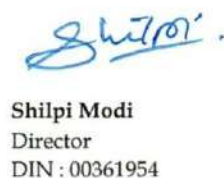 Shilpi
Shilpi Modi
Director
DIN : 00361954